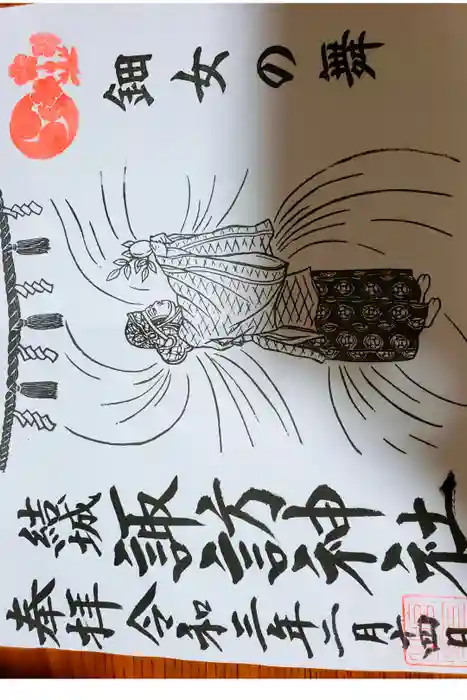 鈿女の舞
結城 諏訪神社
奉拝 令和三年二月十四日